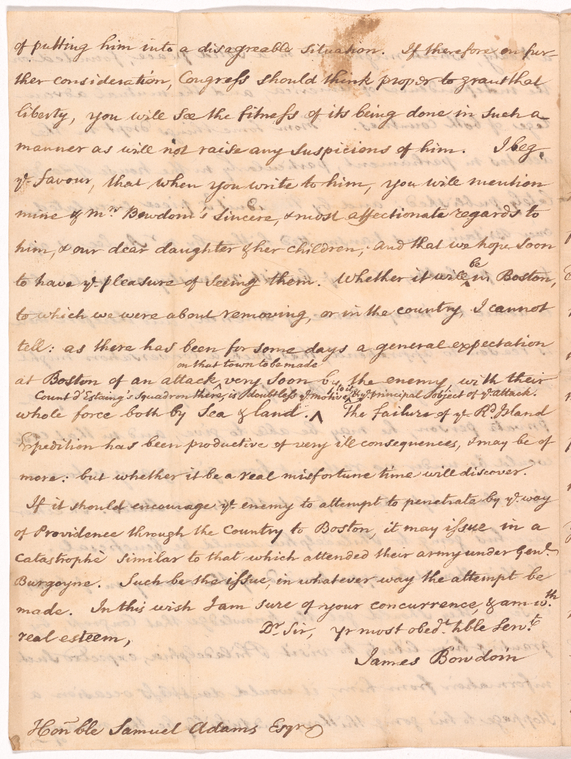 of putting him into a disagreable situation. If therefore on fur-
ther consideration, Congress should think proper to grant that
liberty, you will see the fitness of its being done in such a
manner as will not raise any suspicions of him. I beg
ye favour, that when you write to him, you will mention
mine & Mrs Bowdoin's sincere, & most affectionate regards to
him, & our dear daughter & her children; and that we hope soon
to have ye pleasure of seeing them. Whether it will be in Boston,
to which we were about removing, or in the country, I cannot
tell: as there has been for some days a general expectation
on that town to be made
at Boston of an attack, very soon by the enemy, with their
Count d'Estaing's Squadron there, is doubtless ye motive to & ye principal object of ye attack.
whole force both by Sea & land. ^ The failure of ye Rd. Island
Expedition has been productive of very ill consequences, & may be of
more: but whether it be a real misfortune time will discover.
If it should encourage ye enemy to attempt to penetrate by ye way
of Providence through the Country to Boston it may issue in a
Catastrophe similar to that which attended their army under Genl.
Burgoyne. Such be the issue, in whatever way the attempt be
made. In this wish I am sure of your concurrence, & am wth
real esteem,
Dr Sir, yr most obedt. hble Servt.
James Bowdoin
Honble Samuel Adams Esqr